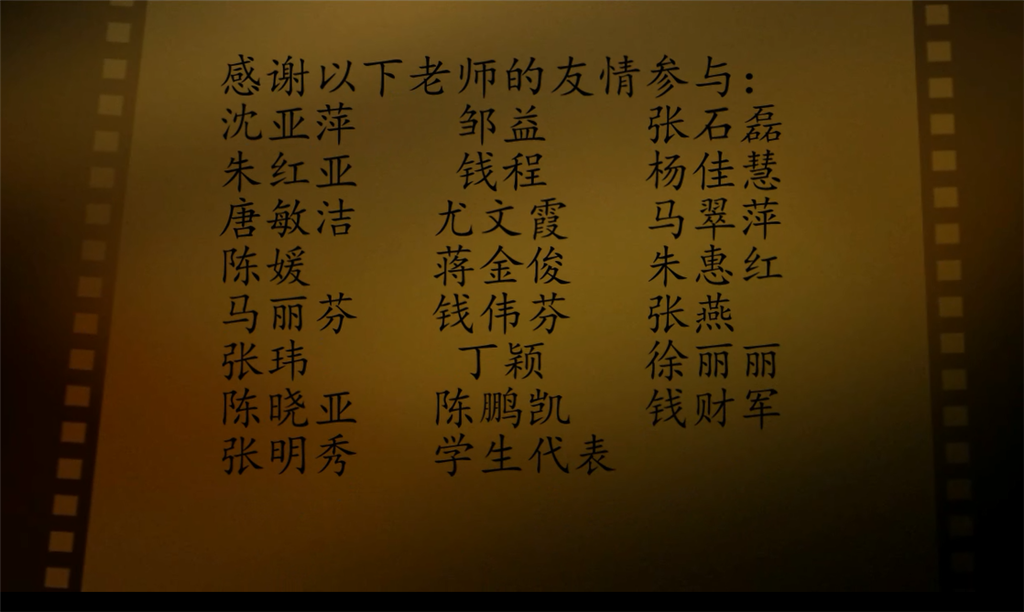 感谢以下老师的友情参与：
沈亚萍 邹益 张石磊
朱红亚 钱程 杨佳慧
唐敏洁 尤文霞 马翠萍
陈媛 蒋金俊 朱惠红
马丽芬 钱伟芬 张燕
张玮 丁颖 徐丽丽
陈晓亚 陈鹏凯 钱财军
张明秀 学生代表